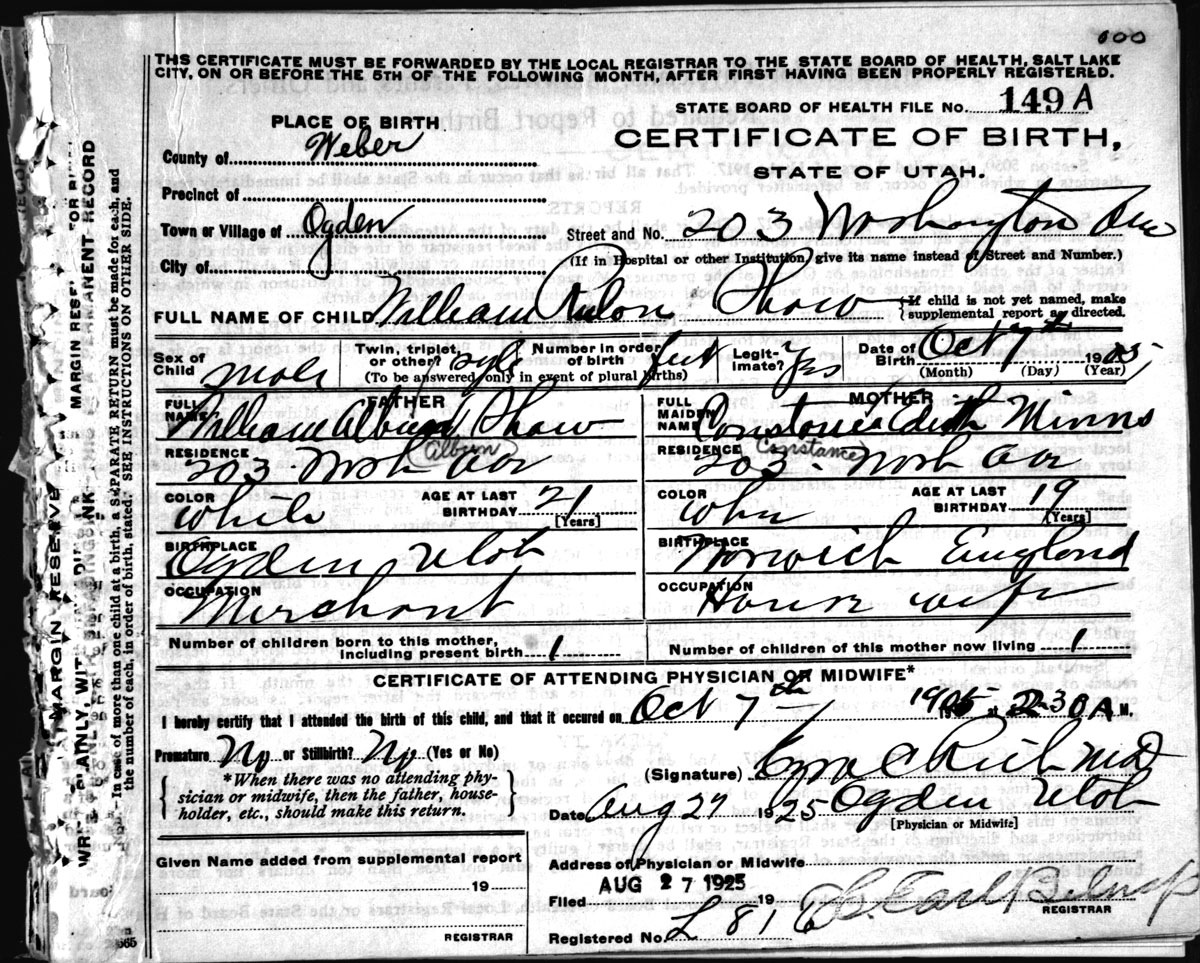 600
THIS CERTIFICATE MUST BE FORWARDED BY THE LOCAL REGISTRAR TO THE STATE BOARD OF HEALTH, SALT LAKE
CITY, ON OR BEFORE THE 5TH OF THE FOLLOWING MONTH, AFTER FIRST HAVING BEEN PROPERLY REGISTERED.
STATE BOARD OF HEALTH FILE No. 149 A
PLACE OF BIRTH
CERTIFICATE OF BIRTH,
County of Weber
STATE OF UTAH.
Precinct of
Town or Village of Ogden
Street and No. 203 Washington Ave
City of
(If in Hospital or other Institution, give its name instead of Street and Number.)
FULL NAME OF CHILD William Rulon Shaw
If child is not yet named, make supplemental report as directed.
Sex of Child Male
Twin, triplet, or other? Number in order of birth first
(To be answered only in event of plural births)
Legit-imate? Yes
Date of Birth Oct 7th 1905
(Month) (Day) (Year)
FATHER
MOTHER
FULL NAME William Albun Shaw
FULL MAIDEN NAME Constance Edith Minns
Albun
Constance
RESIDENCE 203 Wash Ave
RESIDENCE 203 - Wash Ave
COLOR White AGE AT LAST BIRTHDAY 21 [Years]
COLOR Whi AGE AT LAST BIRTHDAY 19 [Years]
BIRTHPLACE Ogden Utah
BIRTHPLACE Norwich England
OCCUPATION Merchant
OCCUPATION House wife
Number of children born to this mother, including present birth 1
Number of children of this mother now living 1
CERTIFICATE OF ATTENDING PHYSICIAN OR MIDWIFE*
I hereby certify that I attended the birth of this child, and that it occured on Oct 7th 1905 at 2-30 A M.
Premature No or Stillbirth? No (Yes or No)
*When there was no attending phy-
sician or midwife, then the father, house-
holder, etc., should make this return.
(Signature) Ezra C Rich MD
Date Aug 27 1925 Ogden Utah
[Physician or Midwife]
Given Name added from supplemental report
19
REGISTRAR
Address of Physician or Midwife
Filed AUG 27 1925 19
REGISTRAR
Registered No. L 816
MARGIN RESERVE
MARGIN RESE FOR BI
WRITE PLAINLY, WITH
PERMANENT RECORD
In case of more than one child at a birth, a SEPARATE RETURN must be made for each, and
the number of each, in order of birth, stated. SEE INSTRUCTIONS ON OTHER SIDE.